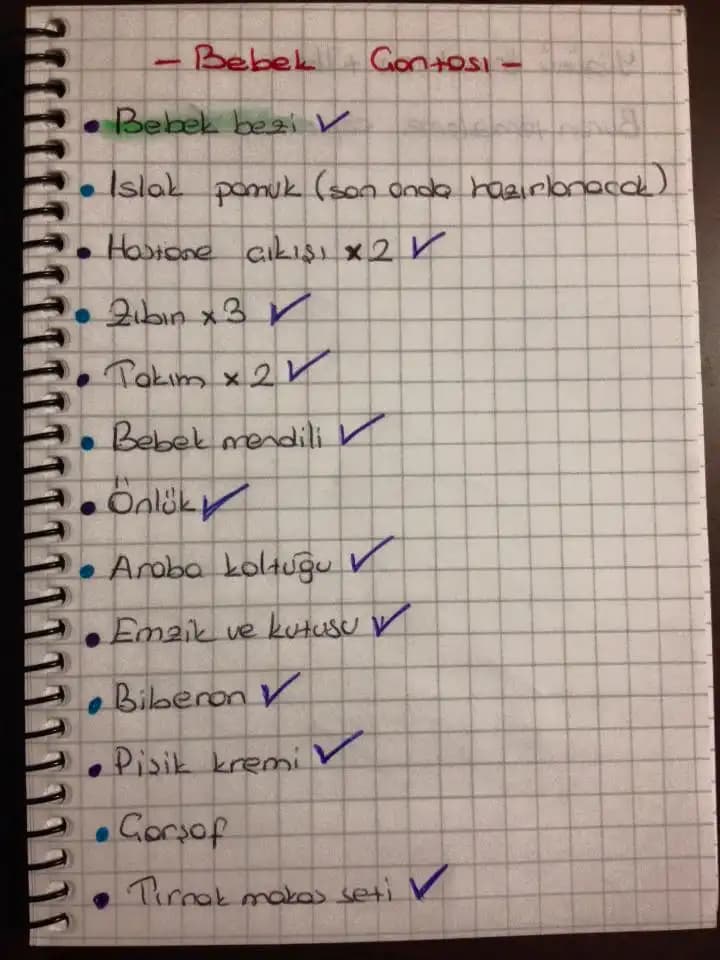 - Bebek Çantası -
• Bebek bezi ✓
• Islak pamuk (son anda hazırlanacak)
• Hastane çıkışı x2 ✓
• Zıbın x3 ✓
• Takım x2 ✓
• Bebek mendili ✓
• Önlük ✓
• Araba koltuğu ✓
• Emzik ve kutusu ✓
• Biberon ✓
• Pişik kremi ✓
• Çarşaf
• Tırnak makas seti ✓